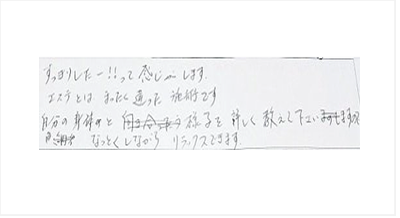 すっきりしたー!!って感じがします。
エステとは まったく違った 施術です
自分の身体のと 様子を 詳しく 教えて下さいますので
なっとくしながら リラックスできます。